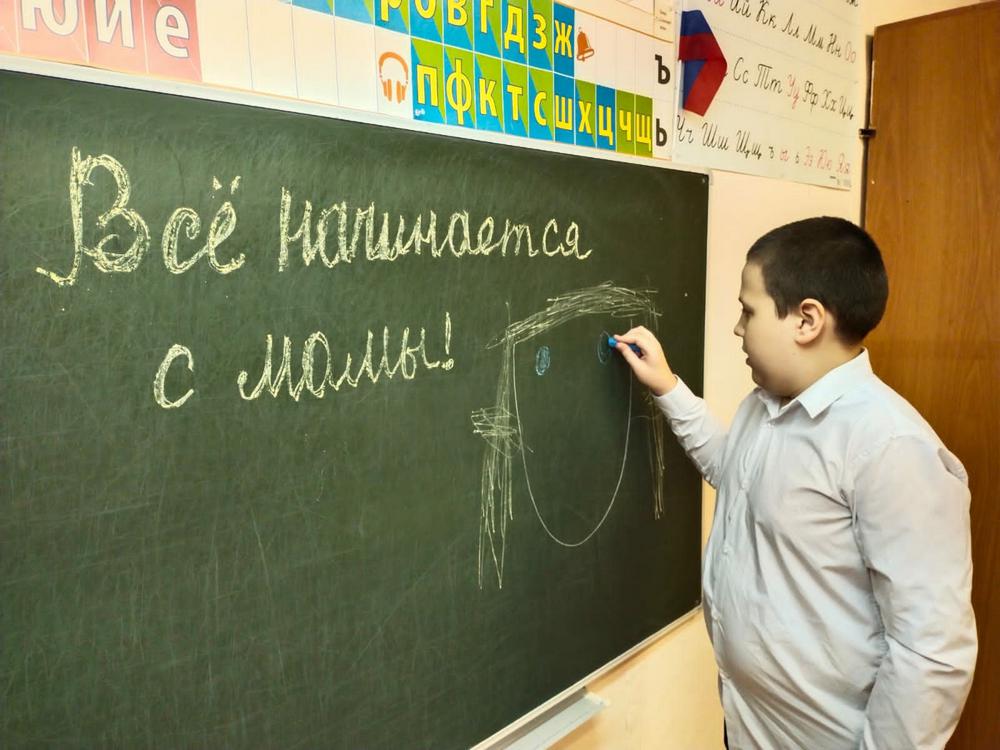 ю и е
р о в г д з ж
п ф к т с ш х ц ч щ
ъ
ь
Йй Кк Лл Мм Нн Оо
Сс Тт Уу Фф Хх Цц
Чч Шш Щщ ъ ы ь Ээ Юю Яя
Всё начинается
с мамы!